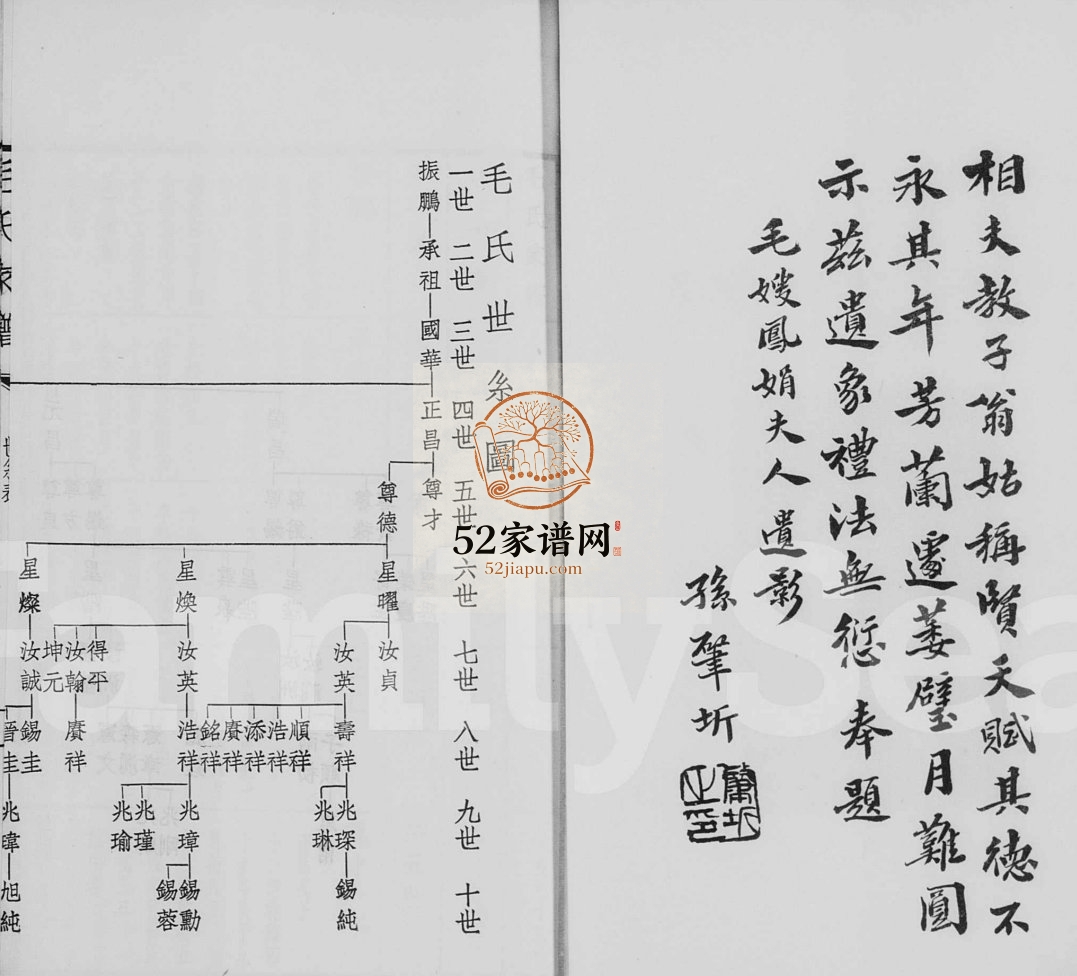 相夫教子翁姑稱賢天賦其德不
永其年芳蘭遽萎璧月難圓
示茲遺象禮法無愆奉題
毛嫂鳳娟夫人遺影
孫肇圻
毛氏世系圖
一世 二世 三世 四世 五世 六世 七世 八世 九世 十世
振鵬 承祖 國華 正昌 尊才
尊德
星曜 汝貞
汝英 壽祥 兆琛 錫純
兆琳
順祥
浩祥
添祥
賡祥
銘祥
星煥 汝英 浩祥 兆璋 錫勳
錫蓉
兆瑾
兆瑜
得平
汝翰 賡祥
坤元
星燦 汝誠 錫圭
晋圭 兆暐 旭純
毛氏家譜
世系表
52家谱网
52jiapu.com
FamilySea